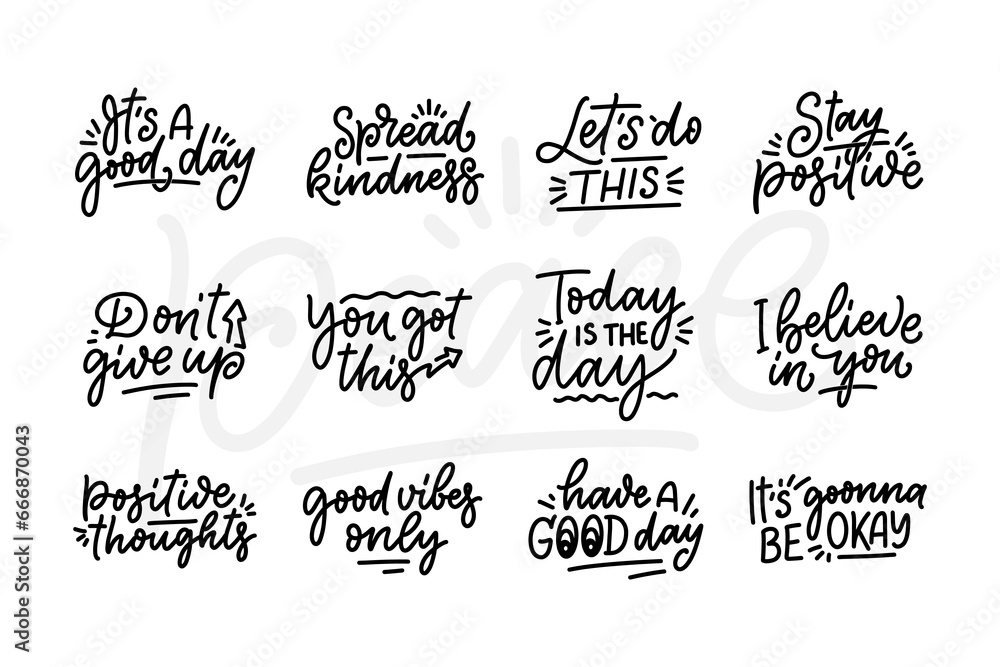 It's A
good day
Spread
kindness
Let's do
THIS
Stay
positive
Don't
give up
You got
this
Today
IS THE
day
I believe
in you
positive
thoughts
good vibes
only
have A
GOOD day
It's goonna
BE OKAY
peace
Adobe Stock | #666870043
Adobe Stock